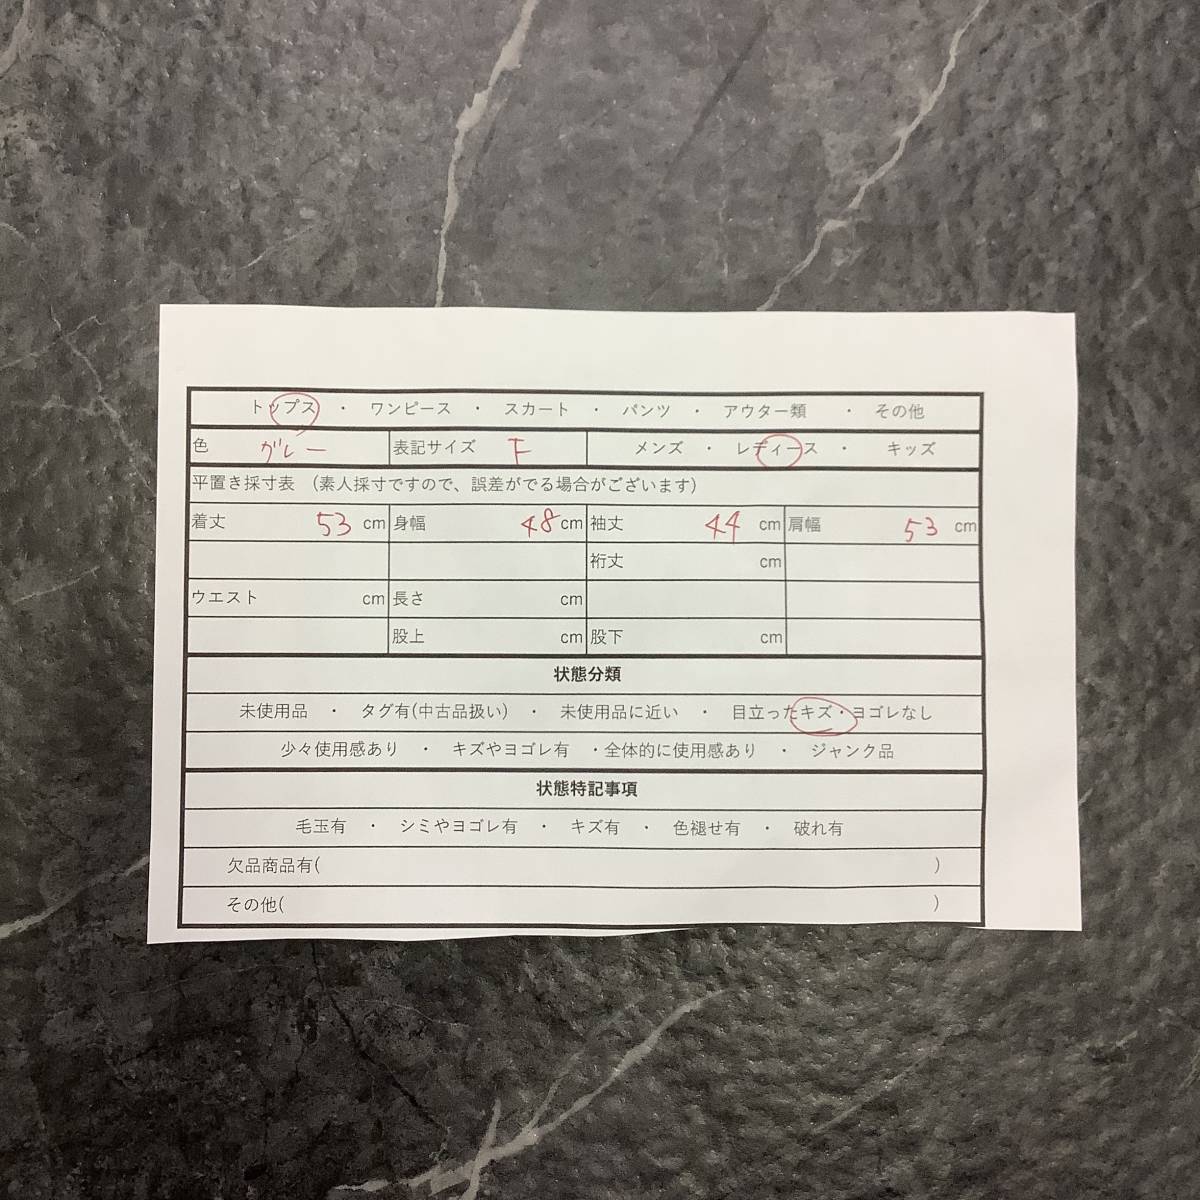 トップス ・ ワンピース ・ スカート ・ パンツ ・ アウター類 ・ その他
色 グレー 表記サイズ F メンズ ・ レディース ・ キッズ
平置き採寸表 (素人採寸ですので、誤差がでる場合がございます)
着丈 53 cm 身幅 48 cm 袖丈 44 cm 肩幅 53 cm
裄丈 cm
ウエスト cm 長さ cm
股上 cm 股下 cm
状態分類
未使用品 ・ タグ有(中古品扱い) ・ 未使用品に近い ・ 目立ったキズ・ヨゴレなし
少々使用感あり ・ キズやヨゴレ有 ・全体的に使用感あり ・ ジャンク品
状態特記事項
毛玉有 ・ シミやヨゴレ有 ・ キズ有 ・ 色褪せ有 ・ 破れ有
欠品商品有( )
その他( )